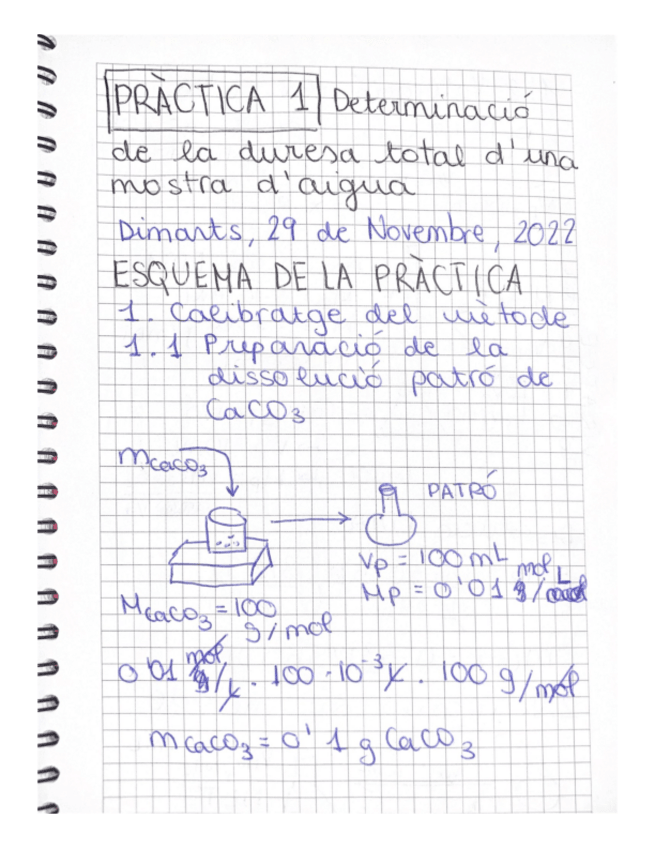 PRÀCTICA 1 Determinació
de la duresa total d'una
mostra d'aigua
Dimarts, 29 de Novembre, 2022
ESQUEMA DE LA PRÀCTICA
1. Calibratge del mètode
1.1 Preparació de la
dissolució patró de
CaCO3
mCaCO3
PATRÓ
Vp = 100 mL
Mp = 0'01 mol/L
MCaCO3 = 100
g/mol
0'01 mol/L · 100 · 10^-3 L · 100 g/mol
mCaCO3 = 0'1 g CaCO3